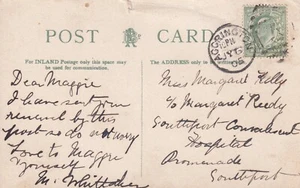 POST CARD
For INLAND Postage only this space may
be used for communication.
The ADDRESS only to be
Dear Maggie
I have sent your
renewal by this
post so do not worry
Love to Maggie
yourself
M. Whittaker
ACCRINGTON
JY 6
Miss Margaret Kelly
c/o Margaret Reedy
Southport Convalescent
Hospital
Promenade
Southport